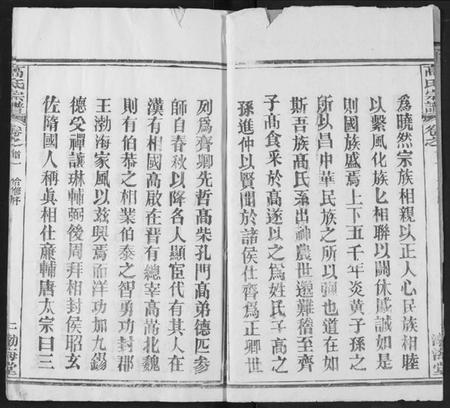 高氏宗譜
卷之
為曉然宗族相親以正人心民族相睦
以繫風化族必相聯以關休戚誠如是
則國族盛焉上下五千年炎黃子孫之
所以昌中華民族之所以強也道在如
斯吾族高氏系出神農世遠難稽至齊
子高食釆於高遂以之為姓氏子高之
孫進仲以賢聞於諸侯仕齊為正卿世
渤海堂
列為齊卿先哲高柴孔門高弟德匹參
師自春秋以降各人顯宦代有其人在
漢有相國高啟在晋有總宰高嵩北魏
則有伯恭之相業伯泰之智勇功封郡
王渤海家風以茲興焉而洋功加九錫
德受禪讓琳輔弼後周拜相封侯昭玄
佐隋國人稱真相仕廉輔唐太宗曰三
高氏宗譜
卷之首
一
渤海堂